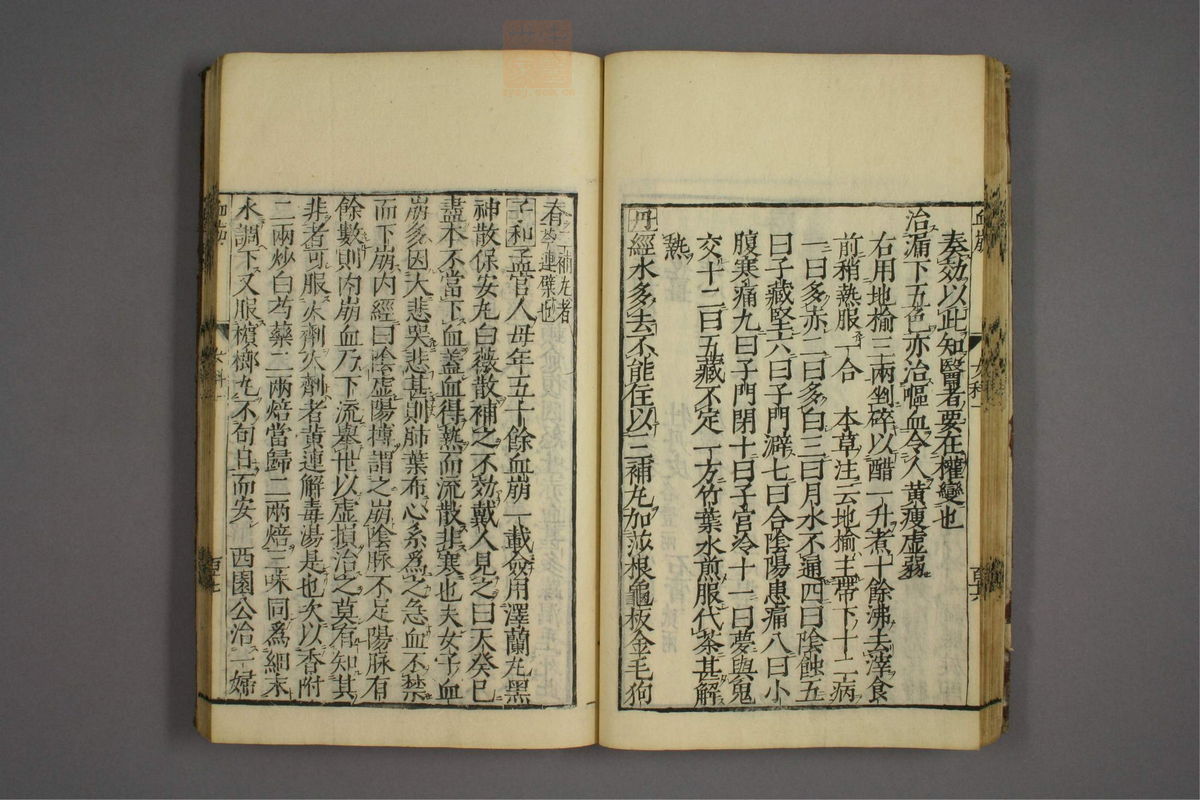 奏効以此知醫者要在權變也
治漏下五色亦治嘔血令人黃瘦虛弱
右用地榆三兩剉碎以醋一升煮十餘沸去滓食
前稍熱服一合　本草注云地榆主帶下十二病
一曰多赤二曰多白三曰月水不通四曰陰蝕五
曰子藏堅六曰子門澼七曰合陰陽患痛八曰小
腹寒痛九曰子門閉十曰子宮冷十一曰夢與鬼
交十二曰五藏不定一方竹葉水煎服代茶甚解
熱
丹經水多去不能住以三補丸加莎根龜板金毛狗
脊三補丸者芩連蘗也
子和孟官人母年五十餘血崩一載僉用澤蘭丸黑
神散保安丸白薇散補之不効戴人見之曰天癸已
盡本不當下血蓋血得熱而流散非寒也夫女子血
崩多因大悲哭悲甚則肺葉布心系爲之急血不禁
而下崩內經曰陰虛陽搏謂之崩陰脉不足陽脉有
餘數則內崩血乃下流舉世以虛損治之莫有知其
非者可服火劑火劑者黃連解毒湯是也次以香附
二兩炒白芍藥二兩焙當歸二兩焙三味同爲細末
水調下又服檳榔丸不旬日而安　西園公治一婦